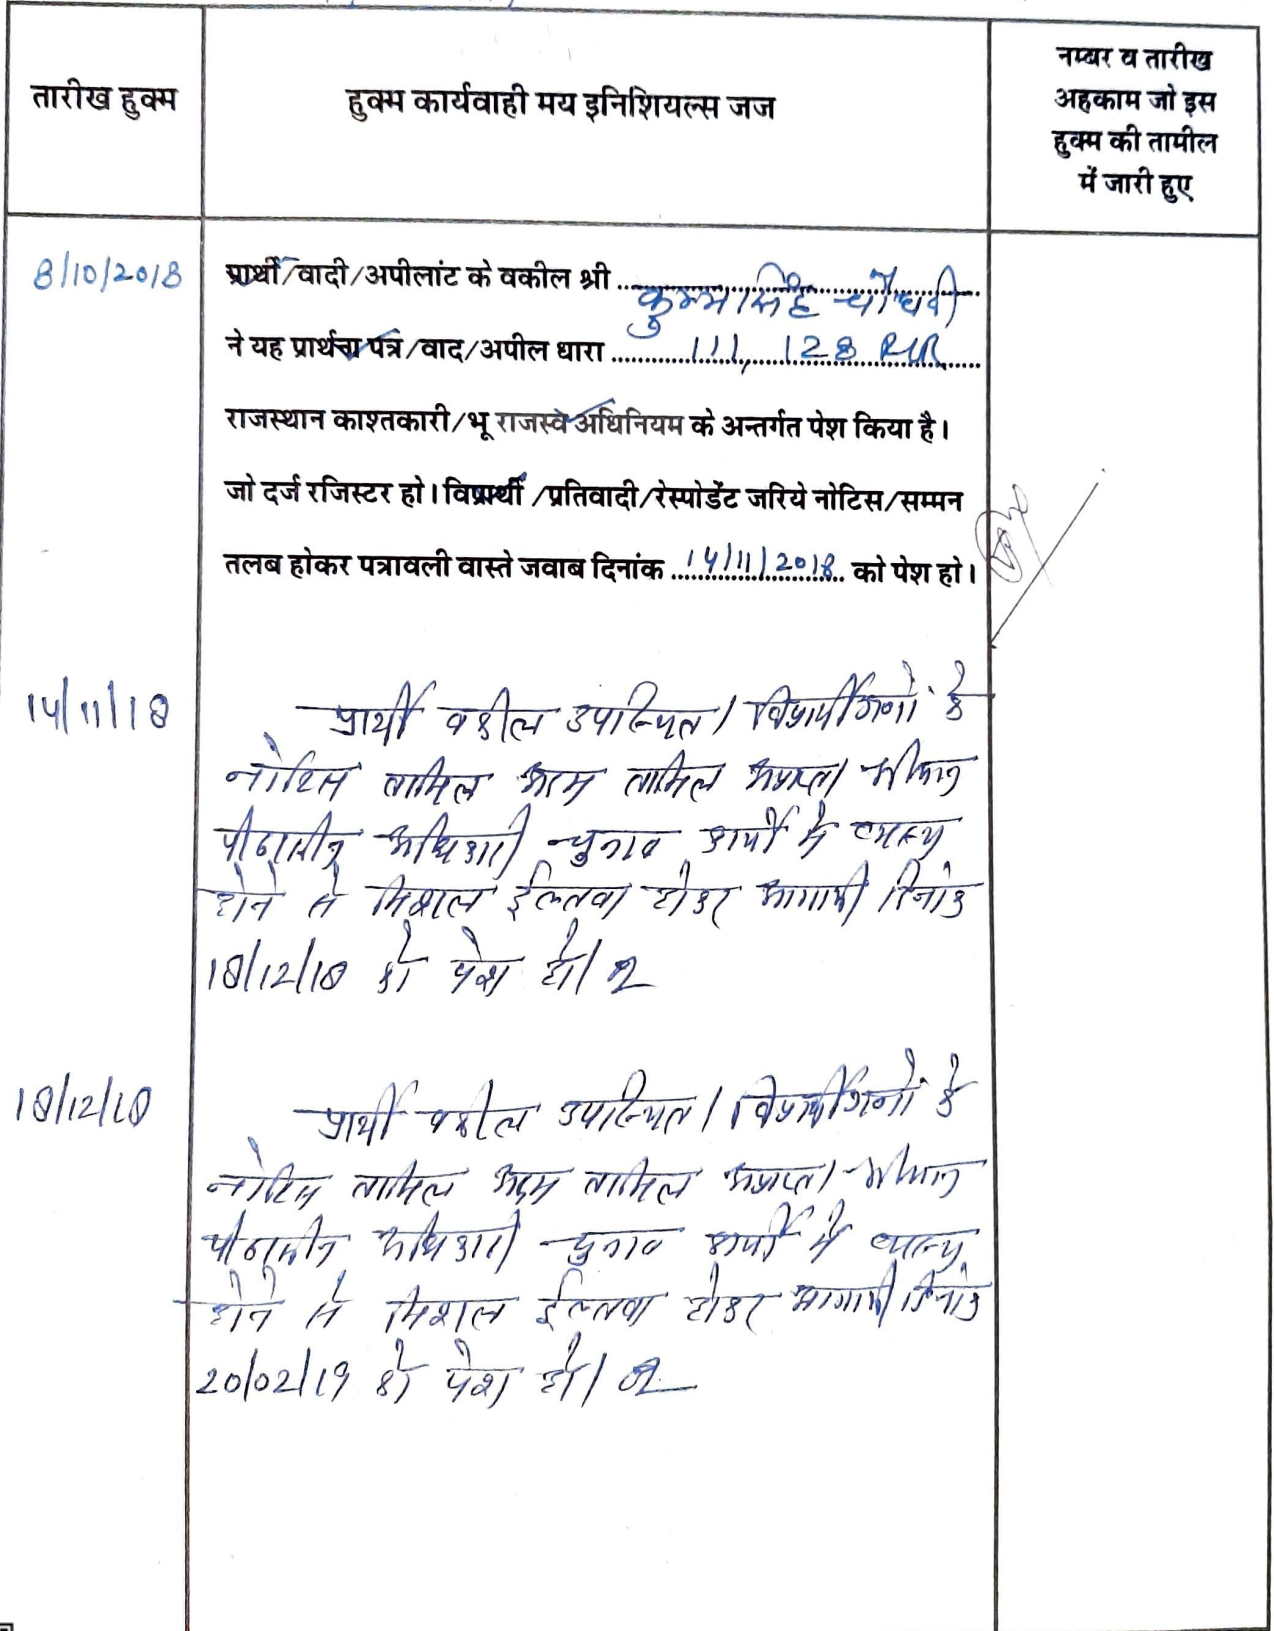 तारीख हुक्म
हुक्म कार्यवाही मय इनिशियल्स जज
नम्बर व तारीख
अहकाम जो इस
हुक्म की तामील
में जारी हुए
8/10/2018
प्रार्थी/वादी/अपीलांट के वकील श्री कुम्भसिंह चौधरी
ने यह प्रार्थना पत्र/वाद/अपील धारा 111, 128
राजस्थान काश्तकारी/भू राजस्व अधिनियम के अन्तर्गत पेश किया है।
जो दर्ज रजिस्टर हो। विप्रार्थी/प्रतिवादी/रेस्पोडेंट जरिये नोटिस/सम्मन
तलब होकर पत्रावली वास्ते जवाब दिनांक 14/11/2018 को पेश हो।
14/11/18
प्रार्थी वकील उपस्थित। विप्रार्थीगणों के
नोटिस तामिल अदम तामिल अप्राप्त। श्रीमान
पीठासीन अधिकारी चुनाव कार्यो में व्यस्त
होने से मिशल ईल्तवा होकर आगामी दिनांक
18/12/18 को पेश हो।
18/12/18
प्रार्थी वकील उपस्थित। विप्रार्थीगणों के
नोटिस तामिल अदम तामिल अप्राप्त। श्रीमान
पीठासीन अधिकारी चुनाव कार्यो में व्यस्त
होने से मिशल ईल्तवा होकर आगामी दिनांक
20/02/19 को पेश हो।